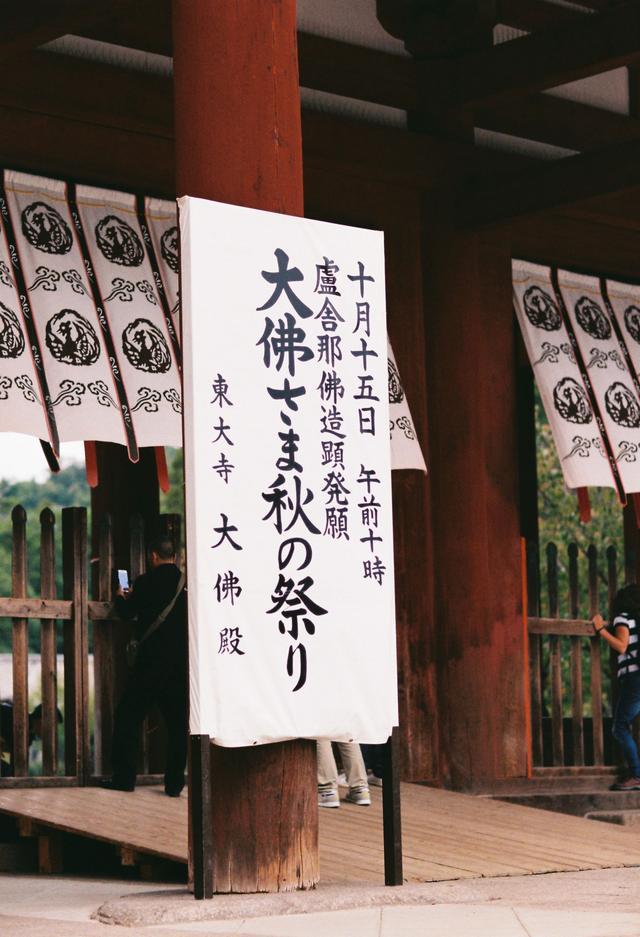 十月十五日 午前十時
盧舎那佛造顕発願
大佛さま秋の祭り
東大寺 大佛殿